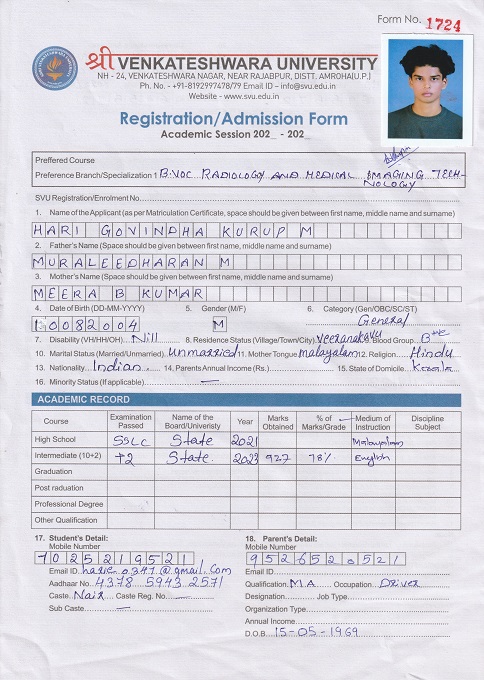 Form No. 1724
श्री VENKATESHWARA UNIVERSITY
NH - 24, VENKATESHWARA NAGAR, NEAR RAJABPUR, DISTT. AMROHA(U.P.)
Ph. No. - +91-8192997478/79 Email ID - info@svu.edu.in
Website - www.svu.edu.in
Registration/Admission Form
Academic Session 202_ - 202_
Preffered Course
Preference Branch/Specialization 1 B.VOC RADIOLOGY AND MEDICAL IMAGING TECH-
NOLOGY
SVU Registration/Enrolment No.
1. Name of the Applicant (as per Matriculation Certificate, space should be given between first name, middle name and surname)
HARI GOVINDHA KURUP M
2. Father's Name (Space should be given between first name, middle name and surname)
MURALEEDHARAN M
3. Mother's Name (Space should be given between first name, middle name and surname)
MEERA B KUMAR
4. Date of Birth (DD-MM-YYYY) 5. Gender (M/F) 6. Category (Gen/OBC/SC/ST)
10082004 M General
7. Disability (VH/HH/OH). Nill 8. Residence Status (Village/Town/City). Veeranakavu Blood Group. B+ve
10. Marital Status (Married/Unmarried). Unmarried 11. Mother Tongue malayalam 12. Religion. Hindu
13. Nationality. Indian 14. Parents Annual Income (Rs.) 15. State of Domicile. Kerala
16. Minority Status (If applicable). —
ACADEMIC RECORD
Course Examination Passed Name of the Board/Univeristy Year Marks Obtained % of Marks/Grade Medium of Instruction Discipline Subject
High School SSLC State 2021 Malayalam
Intermediate (10+2) +2 State 2023 927 78% English
Graduation
Post raduation
Professional Degree
Other Qualification
17. Student's Detail: 18. Parent's Detail:
Mobile Number Mobile Number
7025219521 9526520521
Email ID. Email ID.
Aadhaar No. 4378 5943 2571 Qualification. MA Occupation. Driver
Caste. Nair Caste Reg. No. — Designation. Job Type.
Sub Caste — Organization Type.
Annual Income
D.O.B. 15-05-1969